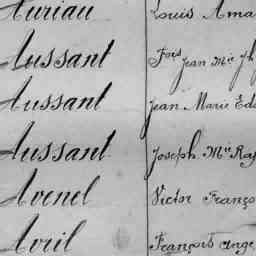 Auriau Louis Ama
Aussant Fois Jean Mie Jh
Aussant Jean Marie Ed
Aussant Joseph. Mie Ra
Avenel Victor Franço
Avril François ange